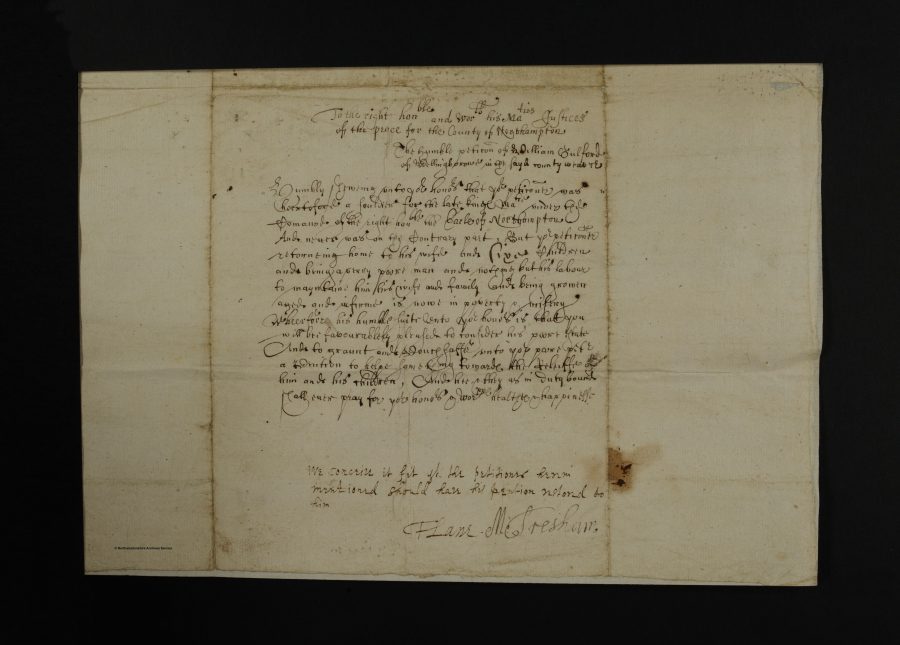 To the right hon^ble and Wor^ll his Ma^ties Justices
of the peace for the County of Northampton
The humble peticon of William Gulford
of Wellingborrowe in the sayd county
Humbly shewing unto yo^r hono^rs that yo^r petitioner was
heretofore a souldier for the late kings Ma^tie under the
Comand of the right hon^ble the Earle of Northampton
And never was on the Contrary part, But yo^r petitioner
returneing home to his wife and sixe Children
and being a very poore man and noteing but his labour
to mayntaine him his wife and family And being growen
aged and infirme is nowe in poverty & misery
Wherefore his humble suite unto yo^r hono^rs is that you
will bee favourablely pleased to consider his poore state
And to graunt and vouchsaffe unto yo^r poore pet^r
a towards the Releiffe of
him and his Children, And hee & they as in duty bound
shall ever pray for yo^r hono^rs & wor^pps health & happinesse
We conceive it fit y^t the petitioner herein
mentioned should have his pention restored to
him
Tresham
© Northamptonshire Archives Service